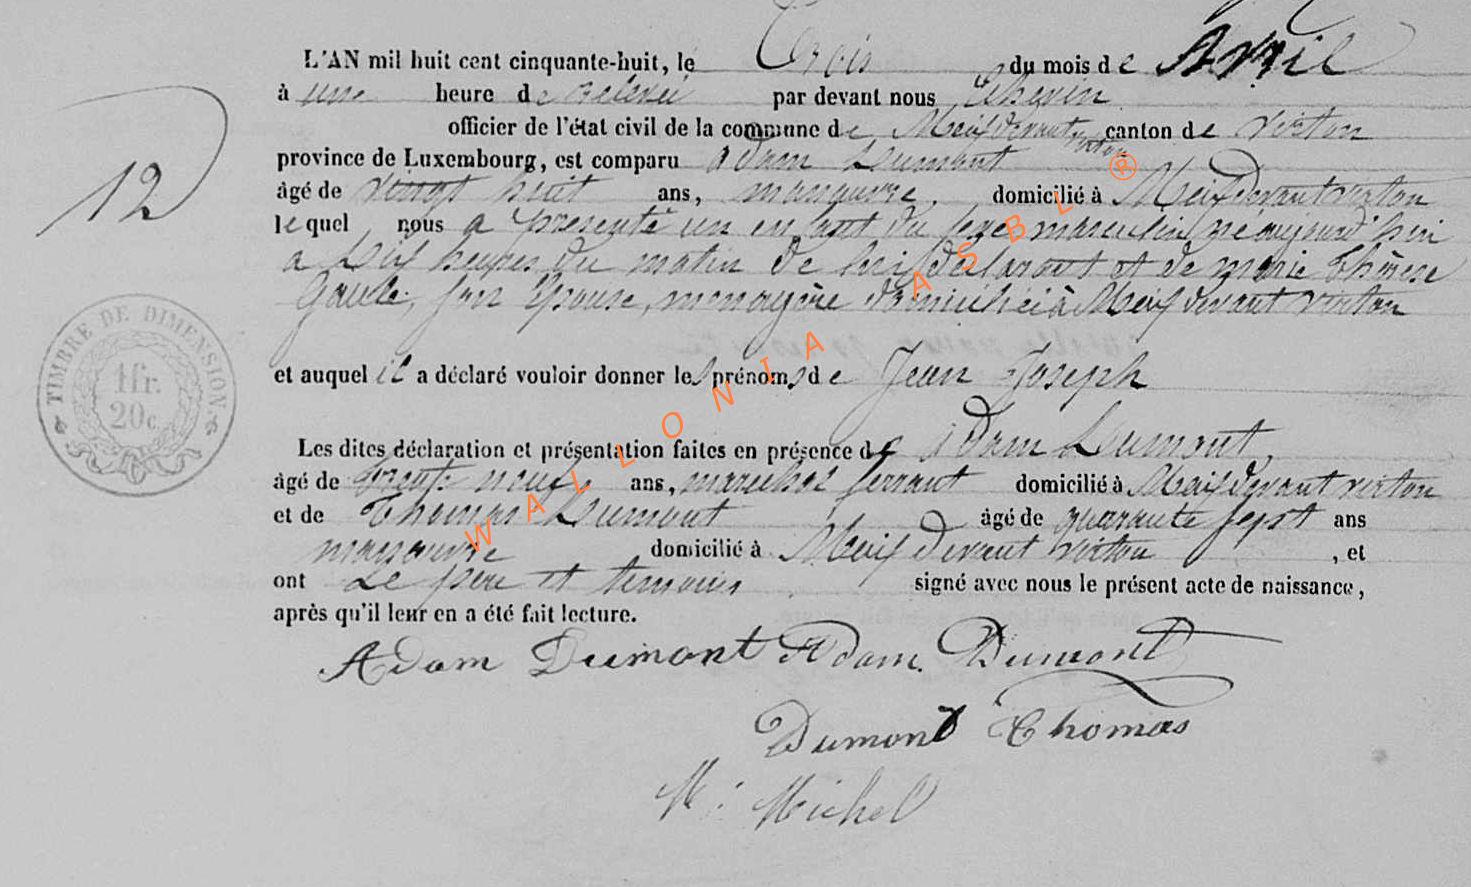 L'AN mil huit cent cinquante-huit, le Trois du mois de Avril
à une heure de relevée par devant nous
officier de l'état civil de la commune de Meix devant virton canton de virton
province de Luxembourg, est comparu adam Dumont
âgé de vingt huit ans, manœuvre, domicilié à Meix devant virton
12
lequel nous a présenté un enfant du sexe masculin né aujourd'hui
a dix heures du matin de lui déclarant et de marie thérèse
son épouse, menagère domiciliéi à Meix devant virton
TIMBRE DE DIMENSION.
1 fr.
20 c.
et auquel il a déclaré vouloir donner les prénoms de Jean Joseph
Les dites déclaration et présentation faites en présence de adam Dumont,
âgé de trente neuf ans, marechal ferrant domicilié à Meix devant virton
et de Thomas Dumont âgé de quarante sept ans
manœuvre domicilié à Meix devant virton, et
ont Le père et temoins signé avec nous le présent acte de naissance,
après qu'il leur en a été fait lecture.
Adam Dumont Adam Dumont
Dumont Thomas
Michel
WALLONIA ASBL ®